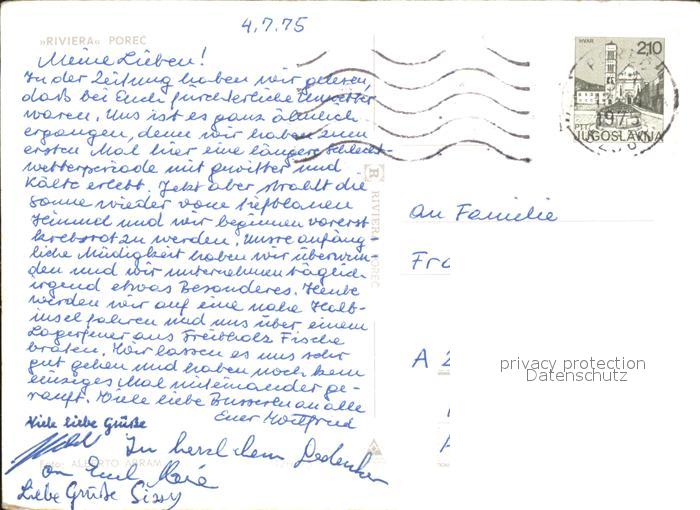 4.7.75
»RIVIERA« POREČ
Meine Lieben!
In der Zeitung haben wir gelesen,
daß bei Euch fürchterliche Unwetter
waren. Uns ist es ganz ähnlich
ergangen, denn wir haben zum
ersten Mal hier eine längere Schlecht-
wetterperiode mit Gewitter und
Kälte erlebt. Jetzt aber strahlt die
Sonne wieder vom tiefblauen
Himmel und wir beginnen vorerst
krebsrot zu werden. Unsre anfäng-
liche Müdigkeit haben wir überwun-
den und wir unternehmen täglich
irgend etwas Besonderes. Heute
werden wir auf eine nahe Halb-
insel fahren und uns über einem
Lagerfeuer aus Treibholz Fische
braten. Wir lassen es uns sehr
gut gehen und haben noch kein
einziges Mal miteinander ge-
rauft. Viele liebe Busseren an alle
Euer Wolfried
Viele liebe Grüße
In herzlichem Gedenken
an Euch Maria
Liebe Grüße Sissy
Foto: ALBERTO ABRAM
R RIVIERA POREČ
HVAR
2,10
PTT
JUGOSLAVIJA
1975
An Familie
Fra
A 2
A
privacy protection
Datenschutz